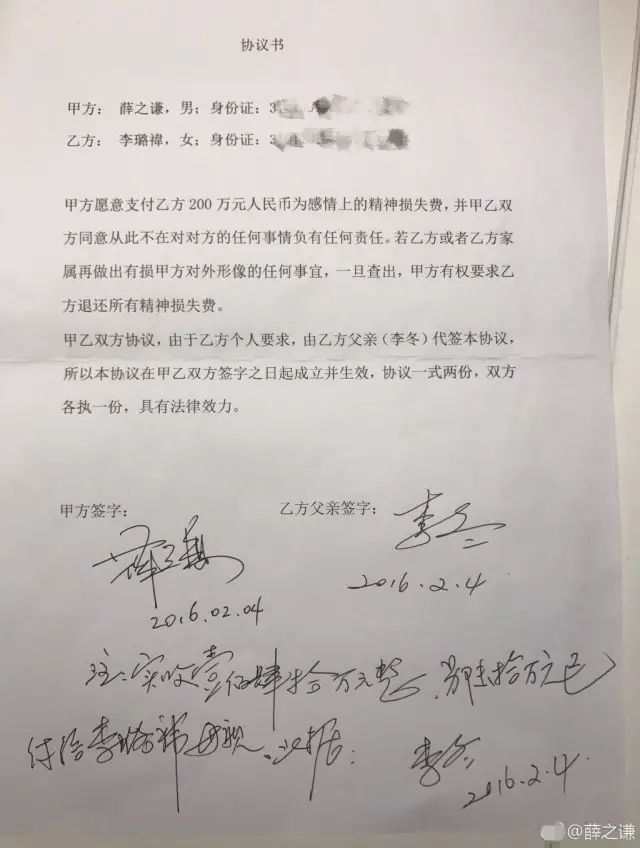 协议书
甲方： 薛之谦，男；身份证：3
乙方： 李璐禕，女；身份证：3
甲方愿意支付乙方 200 万元人民币为感情上的精神损失费，并甲乙双
方同意从此不在对对方的任何事情负有任何责任。若乙方或者乙方家
属再做出有损甲方对外形像的任何事宜，一旦查出，甲方有权要求乙
方退还所有精神损失费。
甲乙双方协议，由于乙方个人要求，由乙方父亲（李冬）代签本协议，
所以本协议在甲乙双方签字之日起成立并生效，协议一式两份，双方
各执一份，具有法律效力。
甲方签字：
薛之谦
2016.02.04
乙方父亲签字：
李冬
2016.2.4
注：实收壹佰肆拾万元整，拾万元已
付给李璐禕母亲。以据：
李冬
2016.2.4.
@薛之谦